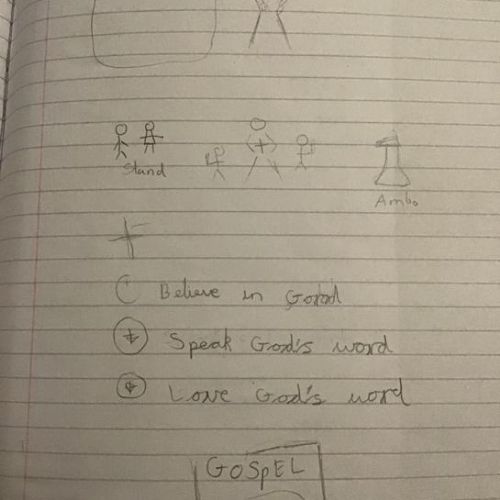 Stand
Ambo
Believe in
Speak God's word
Love God's word
GOSPEL